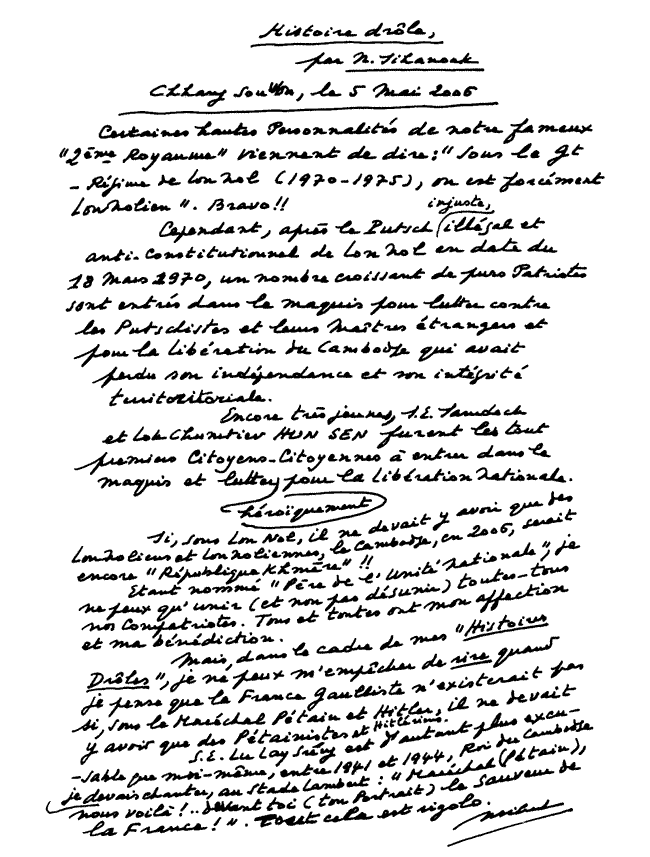 Histoire drôle,
par N. Sihanouk
Chhang Sou Von, le 5 Mai 2006
Certaines hautes Personnalités de notre fameux
"2ème Royaume" viennent de dire : "Sous le gt
- Régime de Lon Nol (1970-1975), on est forcément
LonNolien". Bravo!!
injuste,
Cependant, après le Putsch illégal et
anti-Constitutionnel de Lon Nol en date du
18 Mars 1970, un nombre croissant de purs Patriotes
sont entrés dans le maquis pour lutter contre
les Putschistes et leurs Maîtres étrangers et
pour la libération du Cambodge qui avait
perdu son indépendance et son intégrité
territoritoriale.
Encore très jeunes, S.E. Samdech
et Lok Chumtiev HUN SEN furent les tout
premiers Citoyens-Citoyennes à entrer dans le
maquis et lutter pour la libération nationale.
héroïquement
Si, sous Lon Nol, il ne devait y avoir que des
LonNoliens et LonNoliennes, le Cambodge, en 2006, serait
encore "République Khmère" !!
Etant nommé "Père de l'Unité Nationale", je
ne peux qu'unir (et non pas désunir) toutes-tous
nos Compatriotes. Tous et toutes ont mon affection
et ma bénédiction.
Mais, dans le cadre de mes "Histoires
Drôles", je ne peux m'empêcher de rire quand
je pense que la France Gaulliste n'existerait pas
si, sous le Maréchal Pétain et Hitler, il ne devait
y avoir que des Pétainistes et Hitlériens.
S.E. Lu Lay Sreng est d'autant plus excu-
-sable que moi-même, entre 1941 et 1944, Roi du Cambodge
je devais chanter, au Stade Lambert : "Maréchal (Pétain),
nous voilà !.. devant toi (ton Portrait) le Sauveur de
la France !". Tout cela est rigolo.